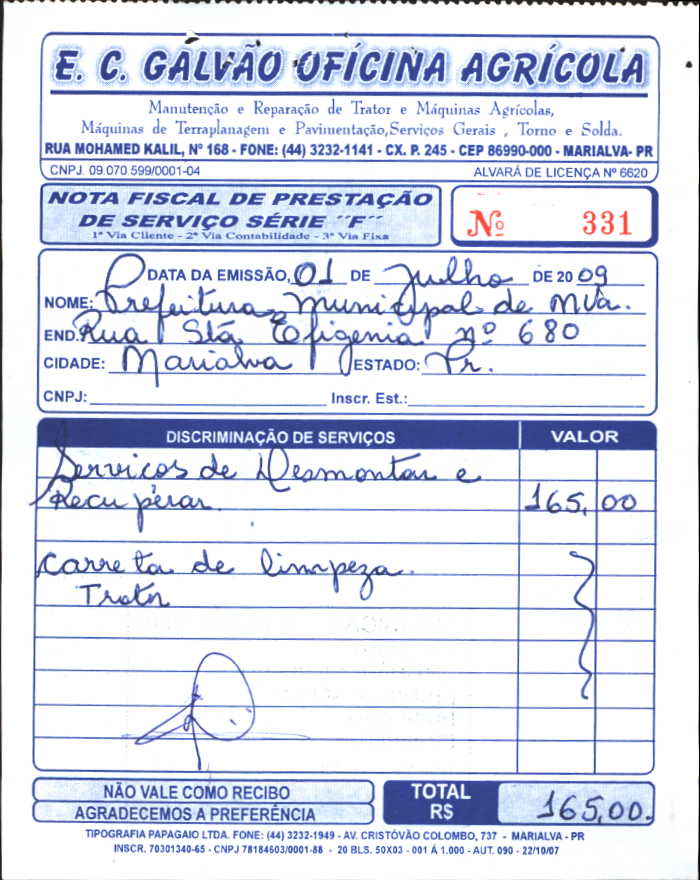 E. C. GALVÃO OFÍCINA AGRÍCOLA
Manutenção e Reparação de Trator e Máquinas Agrícolas,
Máquinas de Terraplanagem e Pavimentação,Serviços Gerais , Torno e Solda.
RUA MOHAMED KALIL, Nº 168 - FONE: (44) 3232-1141 - CX. P. 245 - CEP 86990-000 - MARIALVA- PR
CNPJ. 09.070 599/0001-04 ALVARÁ DE LICENÇA Nº 6620
NOTA FISCAL DE PRESTAÇÃO
DE SERVIÇO SÉRIE ´´F´´
1ª Via Cliente - 2ª Via Contabilidade - 3ª Via Fixa
Nº 331
DATA DA EMISSÃO, 01 DE Julho DE 2009
NOME: Prefeitura Municipal de Mva.
END. Rua Stá Efigenia nº 680
CIDADE: Marialva ESTADO: Pr.
CNPJ: Inscr. Est.:
DISCRIMINAÇÃO DE SERVIÇOS VALOR
Serviços de Desmontar e
Recuperar. 165,00
Carreta de limpeza.
Trator
NÃO VALE COMO RECIBO
AGRADECEMOS A PREFERÊNCIA
TOTAL
R$ 165,00.
TIPOGRAFIA PAPAGAIO LTDA. FONE: (44) 3232-1949 - AV. CRISTÓVÃO COLOMBO, 737 - MARIALVA - PR
INSCR. 70301340-65 - CNPJ 78184603/0001-88 - 20 BLS. 50X03 - 001 Á 1.000 - AUT. 090 - 22/10/07